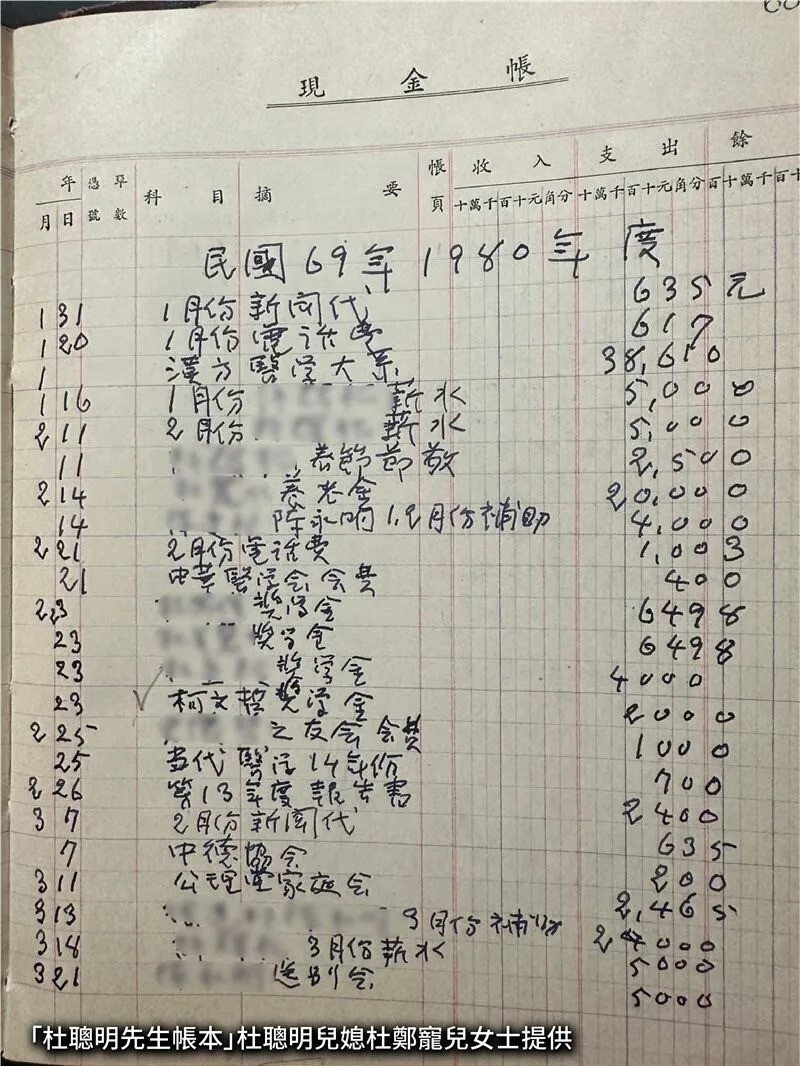 現金帳
年 月 日 憑 單 號 數 科 目 摘 要 帳 頁 收 入 十萬千百十元角分 支 出 十萬千百十元角分 餘 百十萬千百十
民國69年1980年度
1 31 1月份新聞代 635元
1 20 1月份電話費 617
1 漢方醫学大系 38,610
1 16 1月份 薪水 5,000
2 11 2月份 薪水 5,000
11 節敬 2,500
2 14 養老金 20,000
14 陳永明1,2月份補助 4,000
2 21 2月份電話費 1,003
21 中華醫学会会費 400
2 23 獎学金 6498
23 獎学金 6498
23 獎学金 4000
23 柯文哲獎学金 2000
2 25 之友会会費 1000
25 当代醫学14年份 700
2 26 第13年度報告書 2400
3 7 2月份新聞代 635
7 中德協会 200
3 11 公理堂家庭会 2,465
3 13 3月份補助 4000
3 18 3月份薪水 5000
3 21 送別会 5000
「杜聰明先生帳本」杜聰明兒媳杜鄭寵兒女士提供